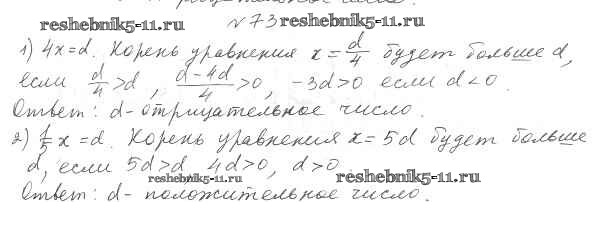 reshebnik5-11.ru №73 reshebnik5-11.ru
1) 4x=d. Корень уравнения x = d/4 будет больше d,
если d/4 > d, (d-4d)/4 > 0, -3d>0 если d<0.
Ответ: d - отрицательное число.
2) 1/5 x = d. Корень уравнения x = 5d будет больше
d, если 5d>d 4d>0, d>0
reshebnik5-11.ru reshebnik5-11.ru
Ответ: d - положительное число.